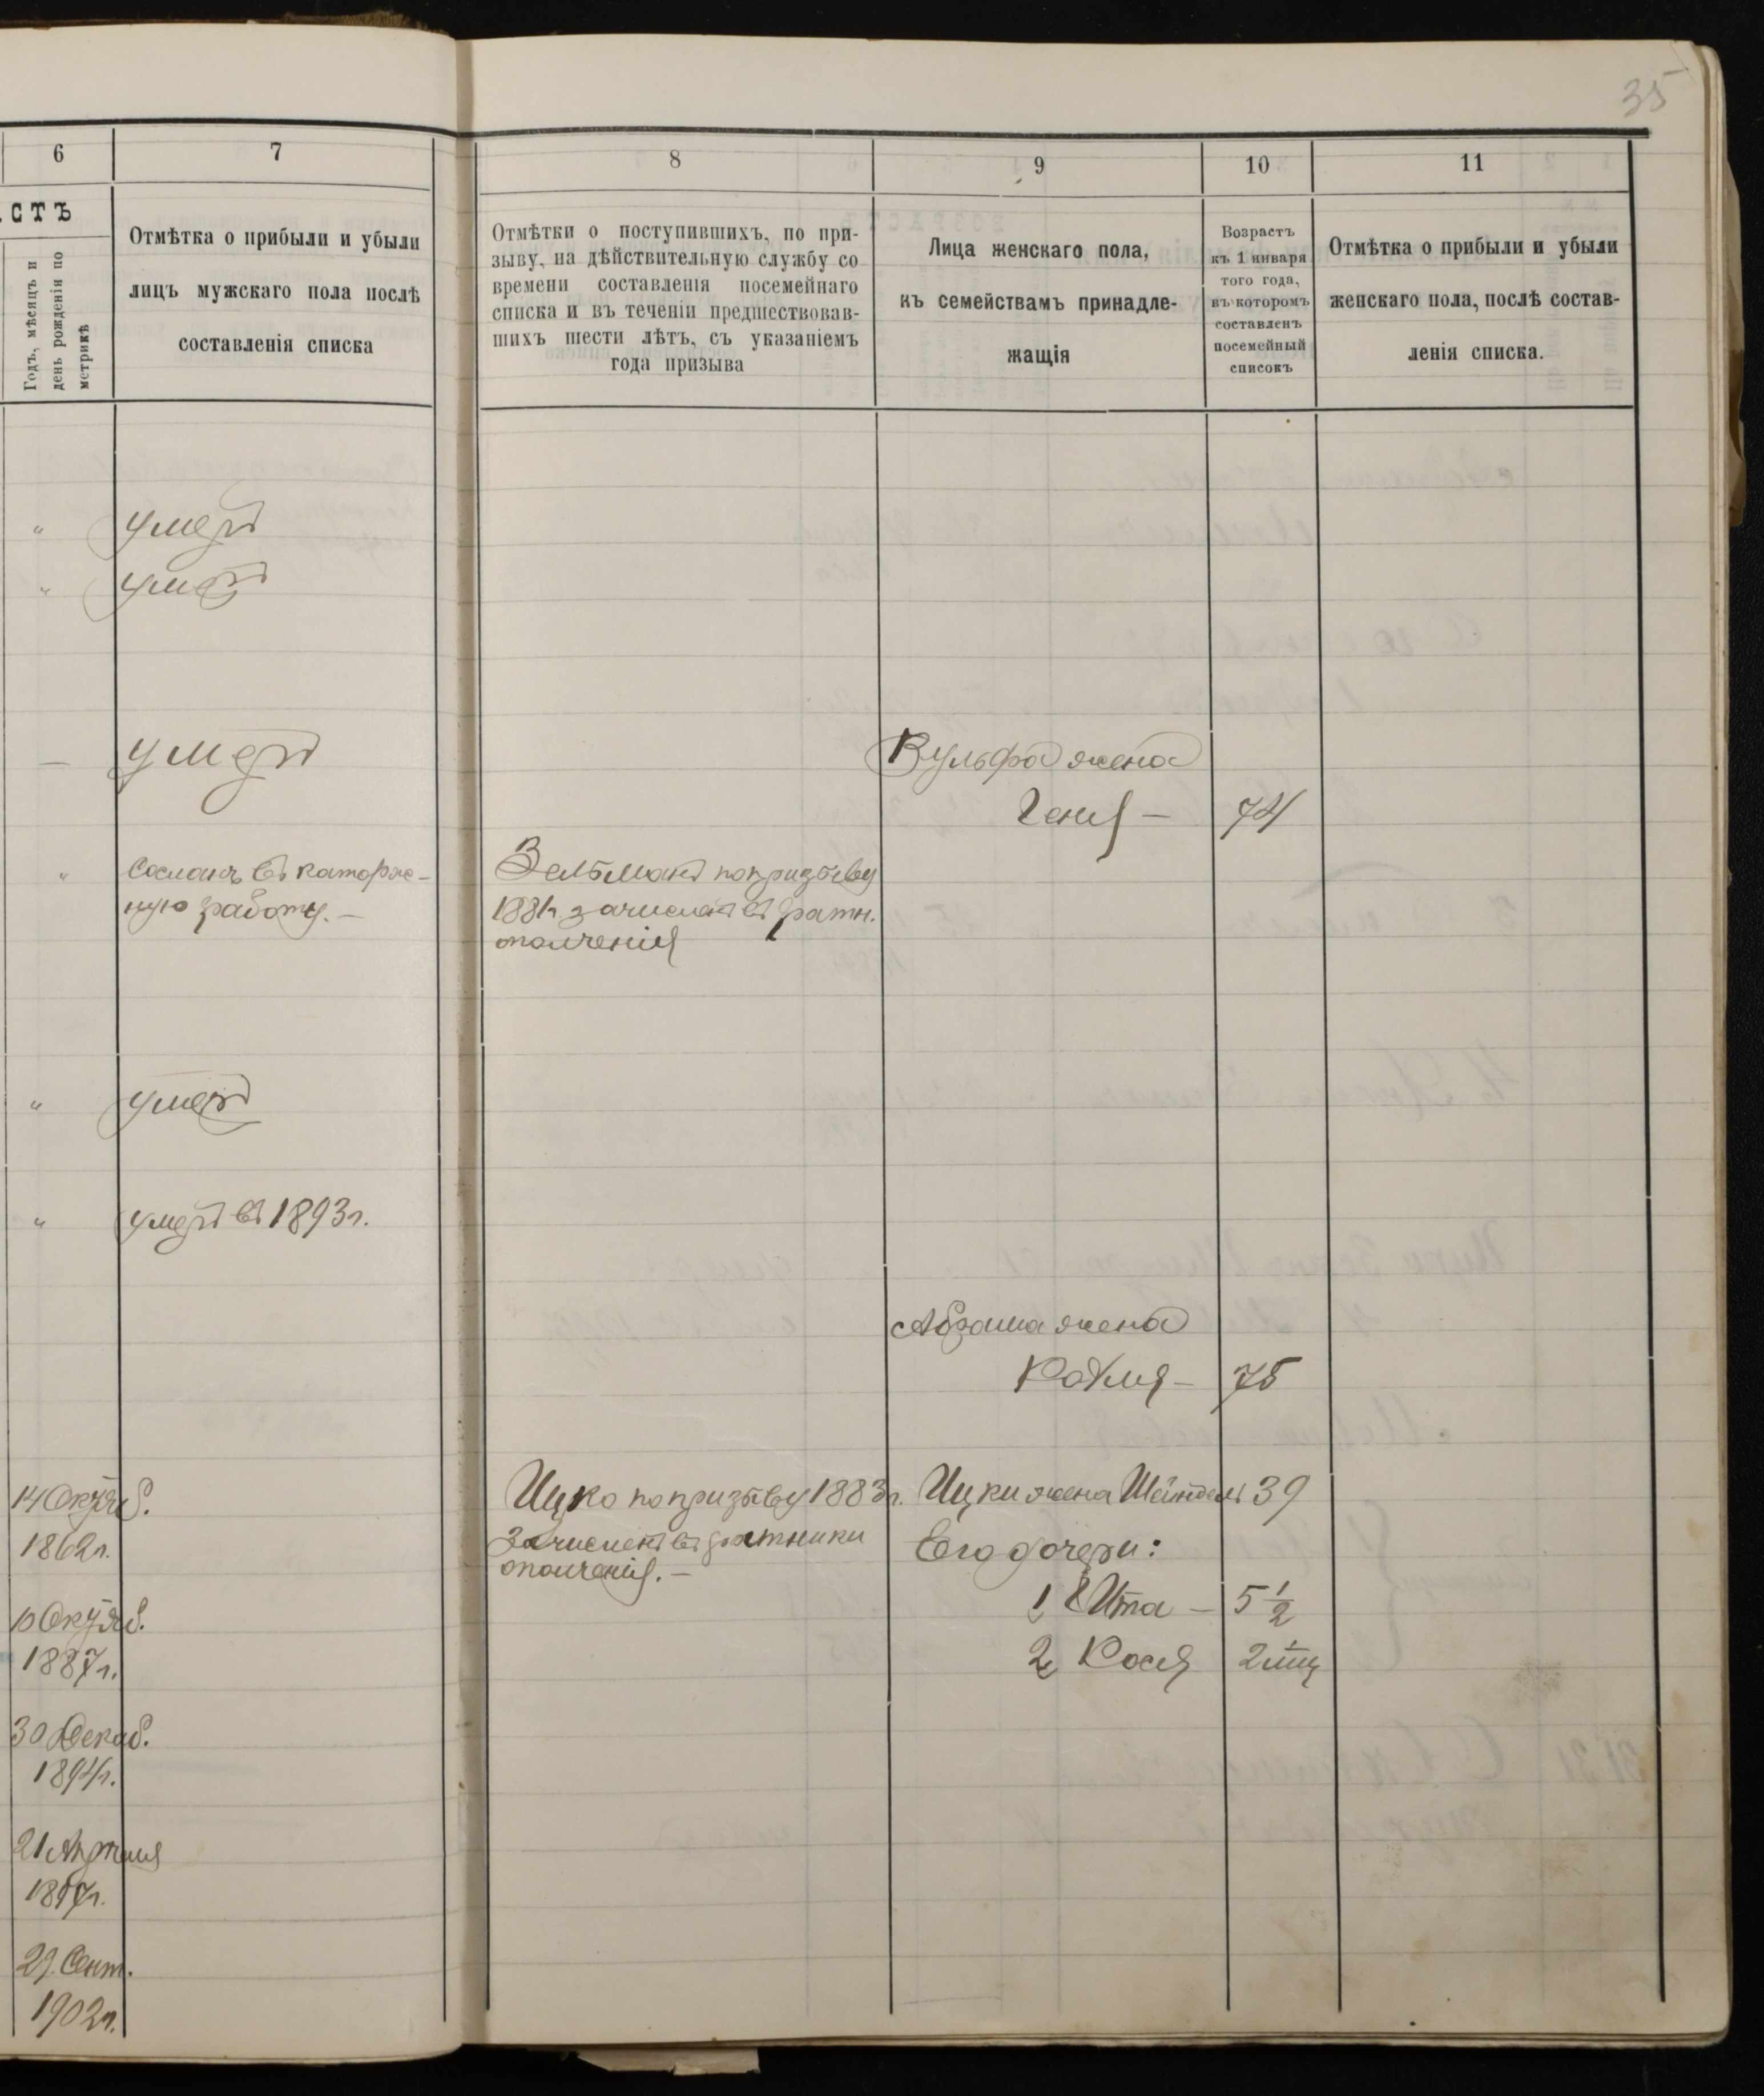 35
6
7
8
9
10
11
СТЪ
Годъ, мѣсяцъ и
день рожденія по
метрикѣ
Отмѣтка о прибыли и убыли
лицъ мужскаго пола послѣ
составленія списка
Отмѣтки о поступившихъ, по при-
зыву, на дѣйствительную службу со
времени составленія посемейнаго
списка и въ теченіи предшествовав-
шихъ шести лѣтъ, съ указаніемъ
года призыва
Лица женскаго пола,
къ семействамъ принадле-
жащія
Возрастъ
къ 1 января
того года,
въ которомъ
составленъ
посемейный
списокъ
Отмѣтка о прибыли и убыли
женскаго пола, послѣ состав-
ленія списка.
" умеръ
" умеръ
— умеръ
Вульфа жена
Геня — 74
" Сосланъ въ каторж-
ную работу. —
Зельманъ по призыву
зачисленъ въ ратн.
ополченія
" умеръ
" умеръ въ 1893 г.
Абрама жена
75
14 Октяб.
1862 г.
Ицко по призыву 1883 г.
зачисленъ въ ратники
ополченія. —
Ицки жена Шейндель 39
Его дочери:
1, Ита — 5 1/2
2,
10 Октяб.
1887 г.
30 Декаб.
1894 г.
21 Апрѣля
1897 г.
29 Сент.
1902 г.